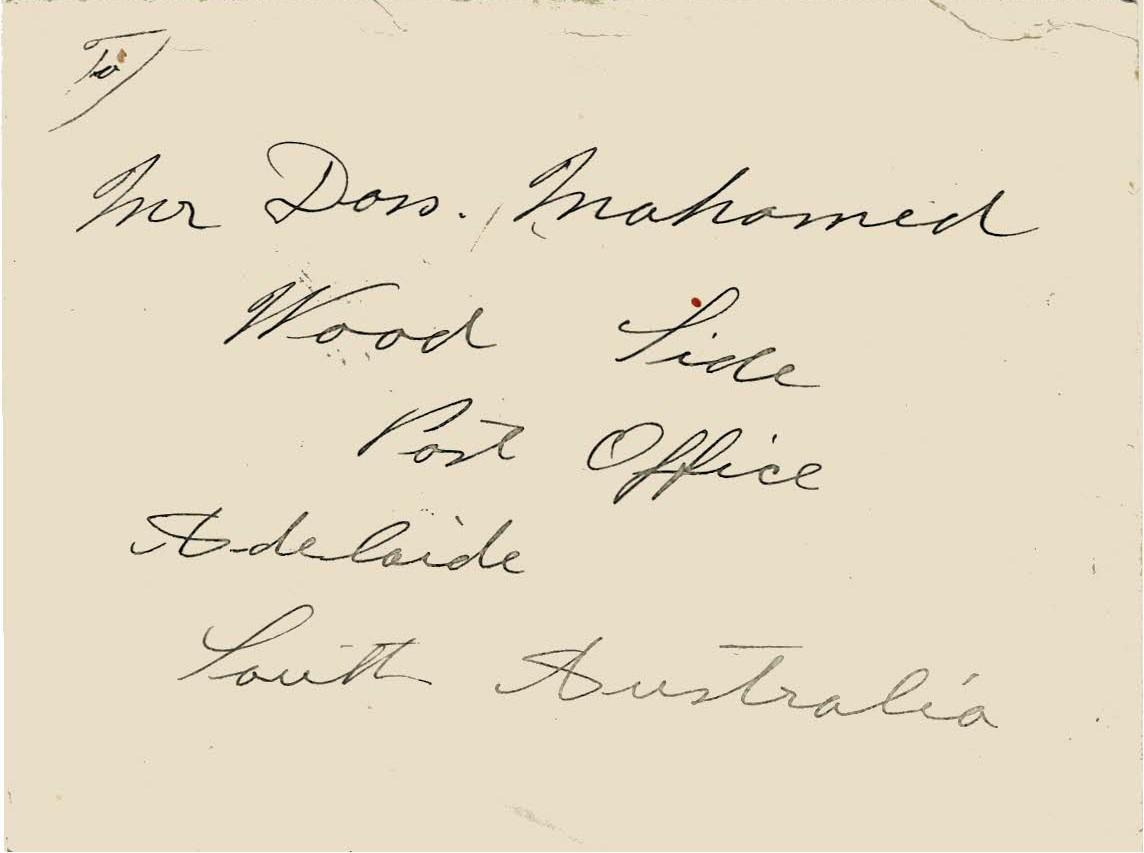 To
Mr Doss. Mahamed
Wood Side
Post Office
Adelaide
South Australia